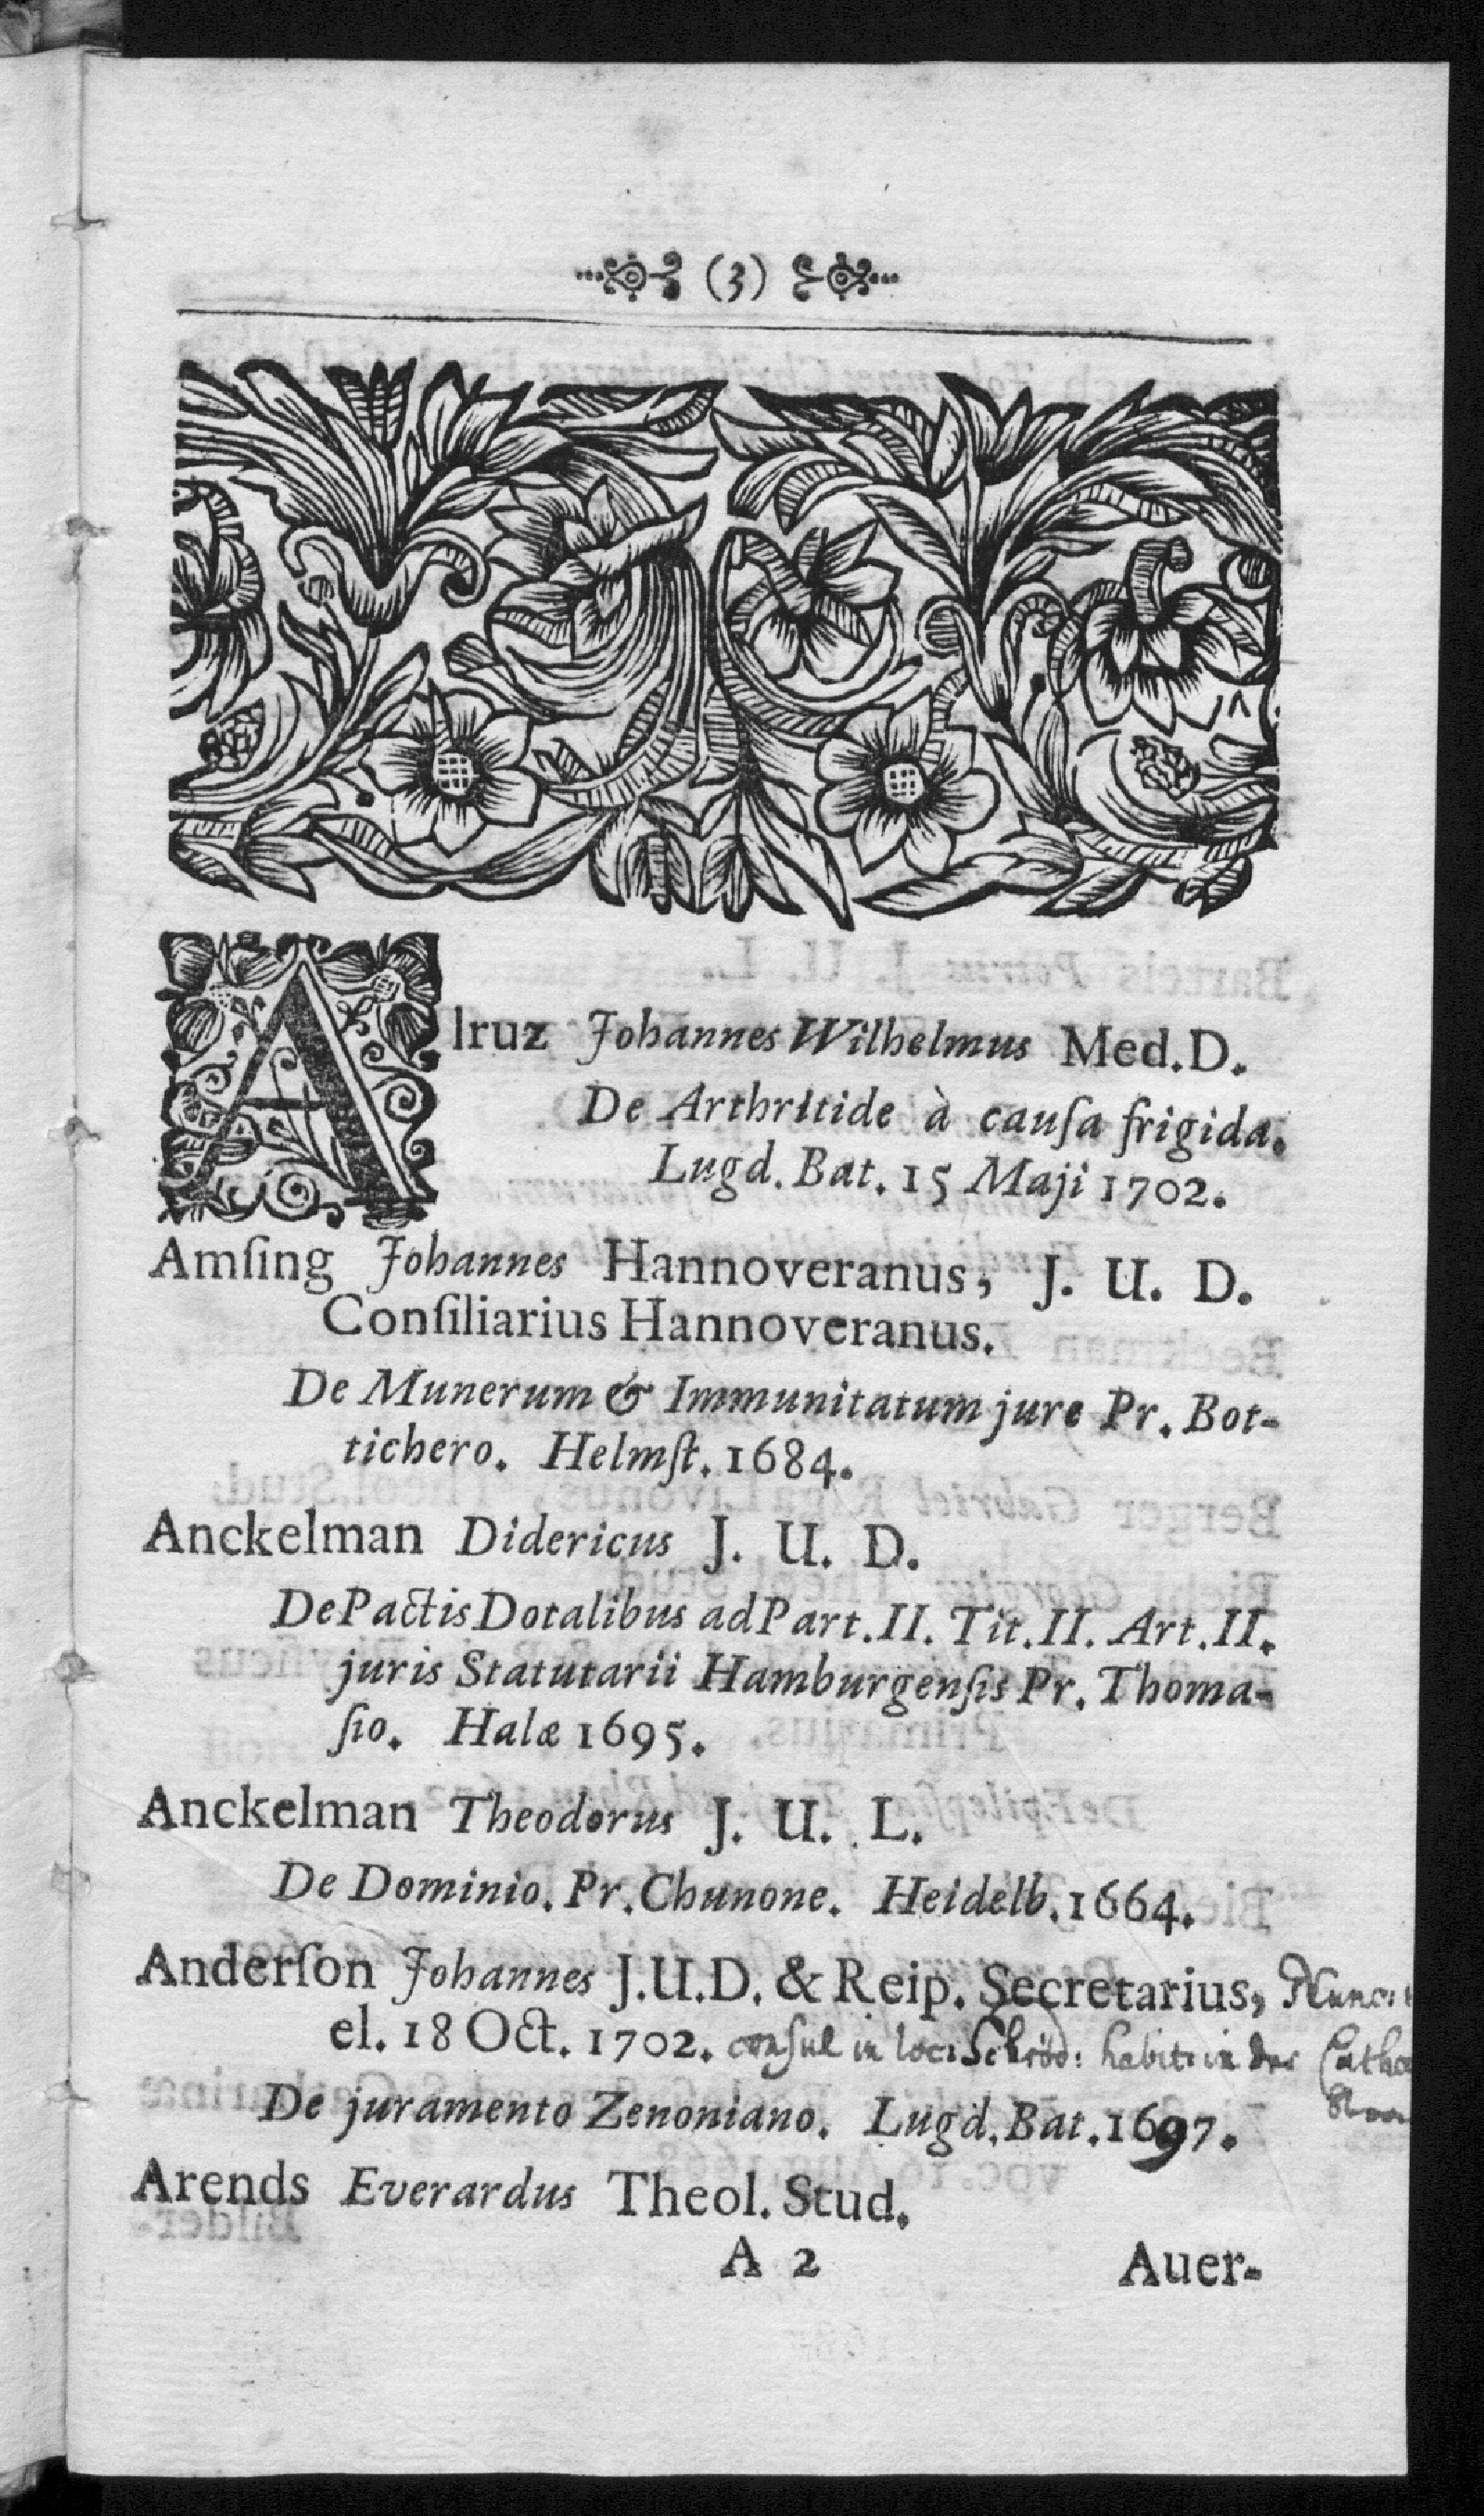 (3)
Alruz Johannes Wilhelmus Med. D.
De Arthritide à cauſa frigida.
Lugd. Bat. 15 Maji 1702.
Amſing Johannes Hannoveranus, J. U. D.
Conſiliarius Hannoveranus.
De Munerum & Immunitatum jure Pr. Bot-
tichero. Helmſt. 1684.
Anckelman Didericus J. U. D.
De Pactis Dotalibus ad Part. II. Tit. II. Art. II.
juris Statutarii Hamburgenſis Pr. Thoma-
ſio. Halæ 1695.
Anckelman Theodorus J. U. L.
De Dominio. Pr. Chunone. Heidelb. 1664.
Anderſon Johannes J. U. D. & Reip. Secretarius, Nunc
el. 18 Oct. 1702. conſul in loc: Schröd: habit: in der
De juramento Zenoniano. Lugd. Bat. 1697.
Arends Everardus Theol. Stud.
A 2 Auer-